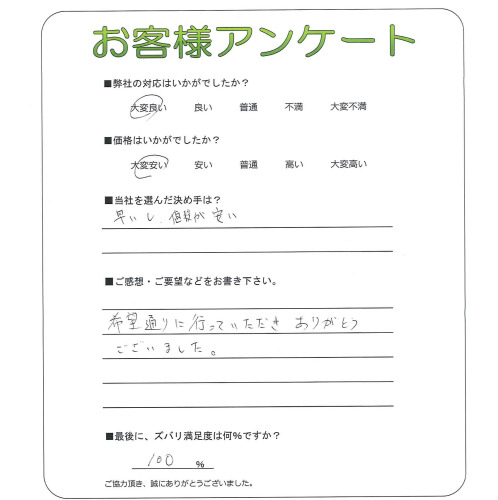 お客様アンケート
■弊社の対応はいかがでしたか？
大変良い 良い 普通 不満 大変不満
■価格はいかがでしたか？
大変安い 安い 普通 高い 大変高い
■当社を選んだ決め手は？
早いし、値段が安い
■ご感想・ご要望などをお書き下さい。
希望通りに行っていただき ありがとう
ございました。
■最後に、ズバリ満足度は何%ですか？
100 %
ご協力頂き、誠にありがとうございました。